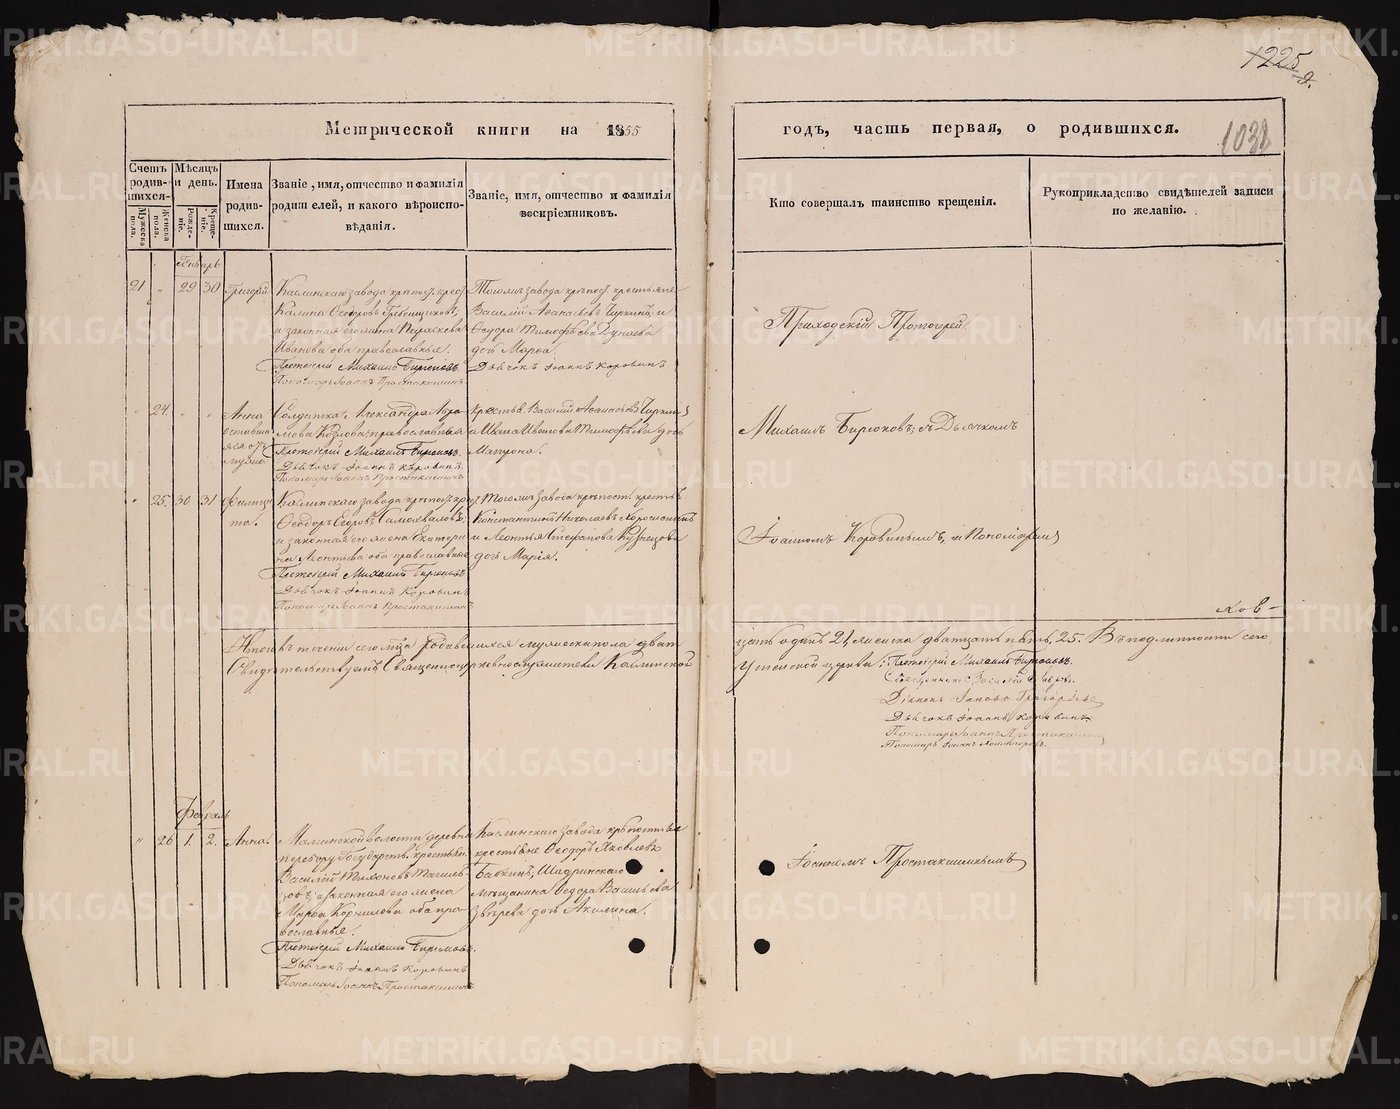 1225
Метрической книги на 1855
годъ, часть первая, о родившихся.
1038
Счетъ родив-шихся.
Мужеска пола.
Женска пола.
Мѣсяцъ и день.
Рожде-ніе.
Креще-ніе.
Имена родив-шихся.
Званіе, имя, отчество и фамилія
родителей, и какого вѣроиспо-
вѣданія.
Званіе, имя, отчество и фамилія
воспріемниковъ.
Кто совершалъ таинство крещенія.
Рукоприкладство свидѣтелей записи
по желанію.
Январь
21 " 29 30 Григорій
Каслинскаго завода крѣпост. крест.
Калина Ѳеодоровъ Гребенщиковъ,
и законная его жена Параскева
Иванова оба православные.
Протоіерей Михаилъ Бирюковъ.
Дьячокъ Іоаннъ Коровинъ
Пономарь Іоаннъ Простакишинъ
Тогожъ завода крѣпост. крестьяне
Василій Аѳанасьевъ Чиркинъ, и
Ѳедора Тимофѣева Дунаева
дочь Марѳа.
Приходскій Протоіерей
" 24 " " Анна
Солдатка Александра Авра-
мова Козлова православная
Протоіерей Михаилъ Бирюковъ.
Дьячокъ Іоаннъ Коровинъ
Пономарь Іоаннъ Простакишинъ
Крестья. Василій Аѳанасьевъ Чиркинъ
дочь
Матрона.
Михаилъ Бирюковъ, съ Дьячкомъ
" 25. 30 31 Филица-
та.
Каслинскаго завода крѣпост. кре.
Ѳеодоръ Егоровъ Самохваловъ,
и законная его жена Екатери-
на Леонтьева оба православные
Протоіерей Михаилъ Бирюковъ
Дьячокъ Іоаннъ Коровинъ
Пономарь Іоаннъ Простакишинъ
Тогожъ завода крѣпост. крестья.
Константинъ Николаевъ Хорошенинъ
и Леонтья Стефанова Кузнецова
дочь Марія.
Іоанномъ Коровинымъ, и Пономаремъ
Итого въ теченіи сего мѣсяца родившихся мужеска пола двад-
цать одинъ 21, женска двадцать пять, 25. Въ подлинности сего
Свидѣтельствуемъ Священноцерковнослужители Каслинской
Успенской церкви: Протоіерей Михаилъ Бирюковъ.
Священникъ Василій
Діаконъ Іаковъ Григорьевъ
Дьячокъ Іоаннъ Коровинъ
Пономарь Іоаннъ Простакишинъ
Пономарь Іоаннъ
Февраль
" 26 1. 2. Анна.
волости деревни
Перебору Государств. крестьян.
Василій Тихоновъ Тагиль-
цовъ, и законная его жена
Марѳа Корнилова оба пра-
вославные.
Протоіерей Михаилъ Бирюковъ.
Дьячокъ Іоаннъ Коровинъ
Пономарь Іоаннъ Простакишинъ
Каслинскаго завода крѣпостные
крестьяне Ѳеодоръ Яковлевъ
Бабкинъ, Шадринскаго
мѣщанина Ѳедора Васильева
Звѣрева дочь Акилина.
Іоанномъ Простакишинымъ
METRIKI.GASO-URAL.RU